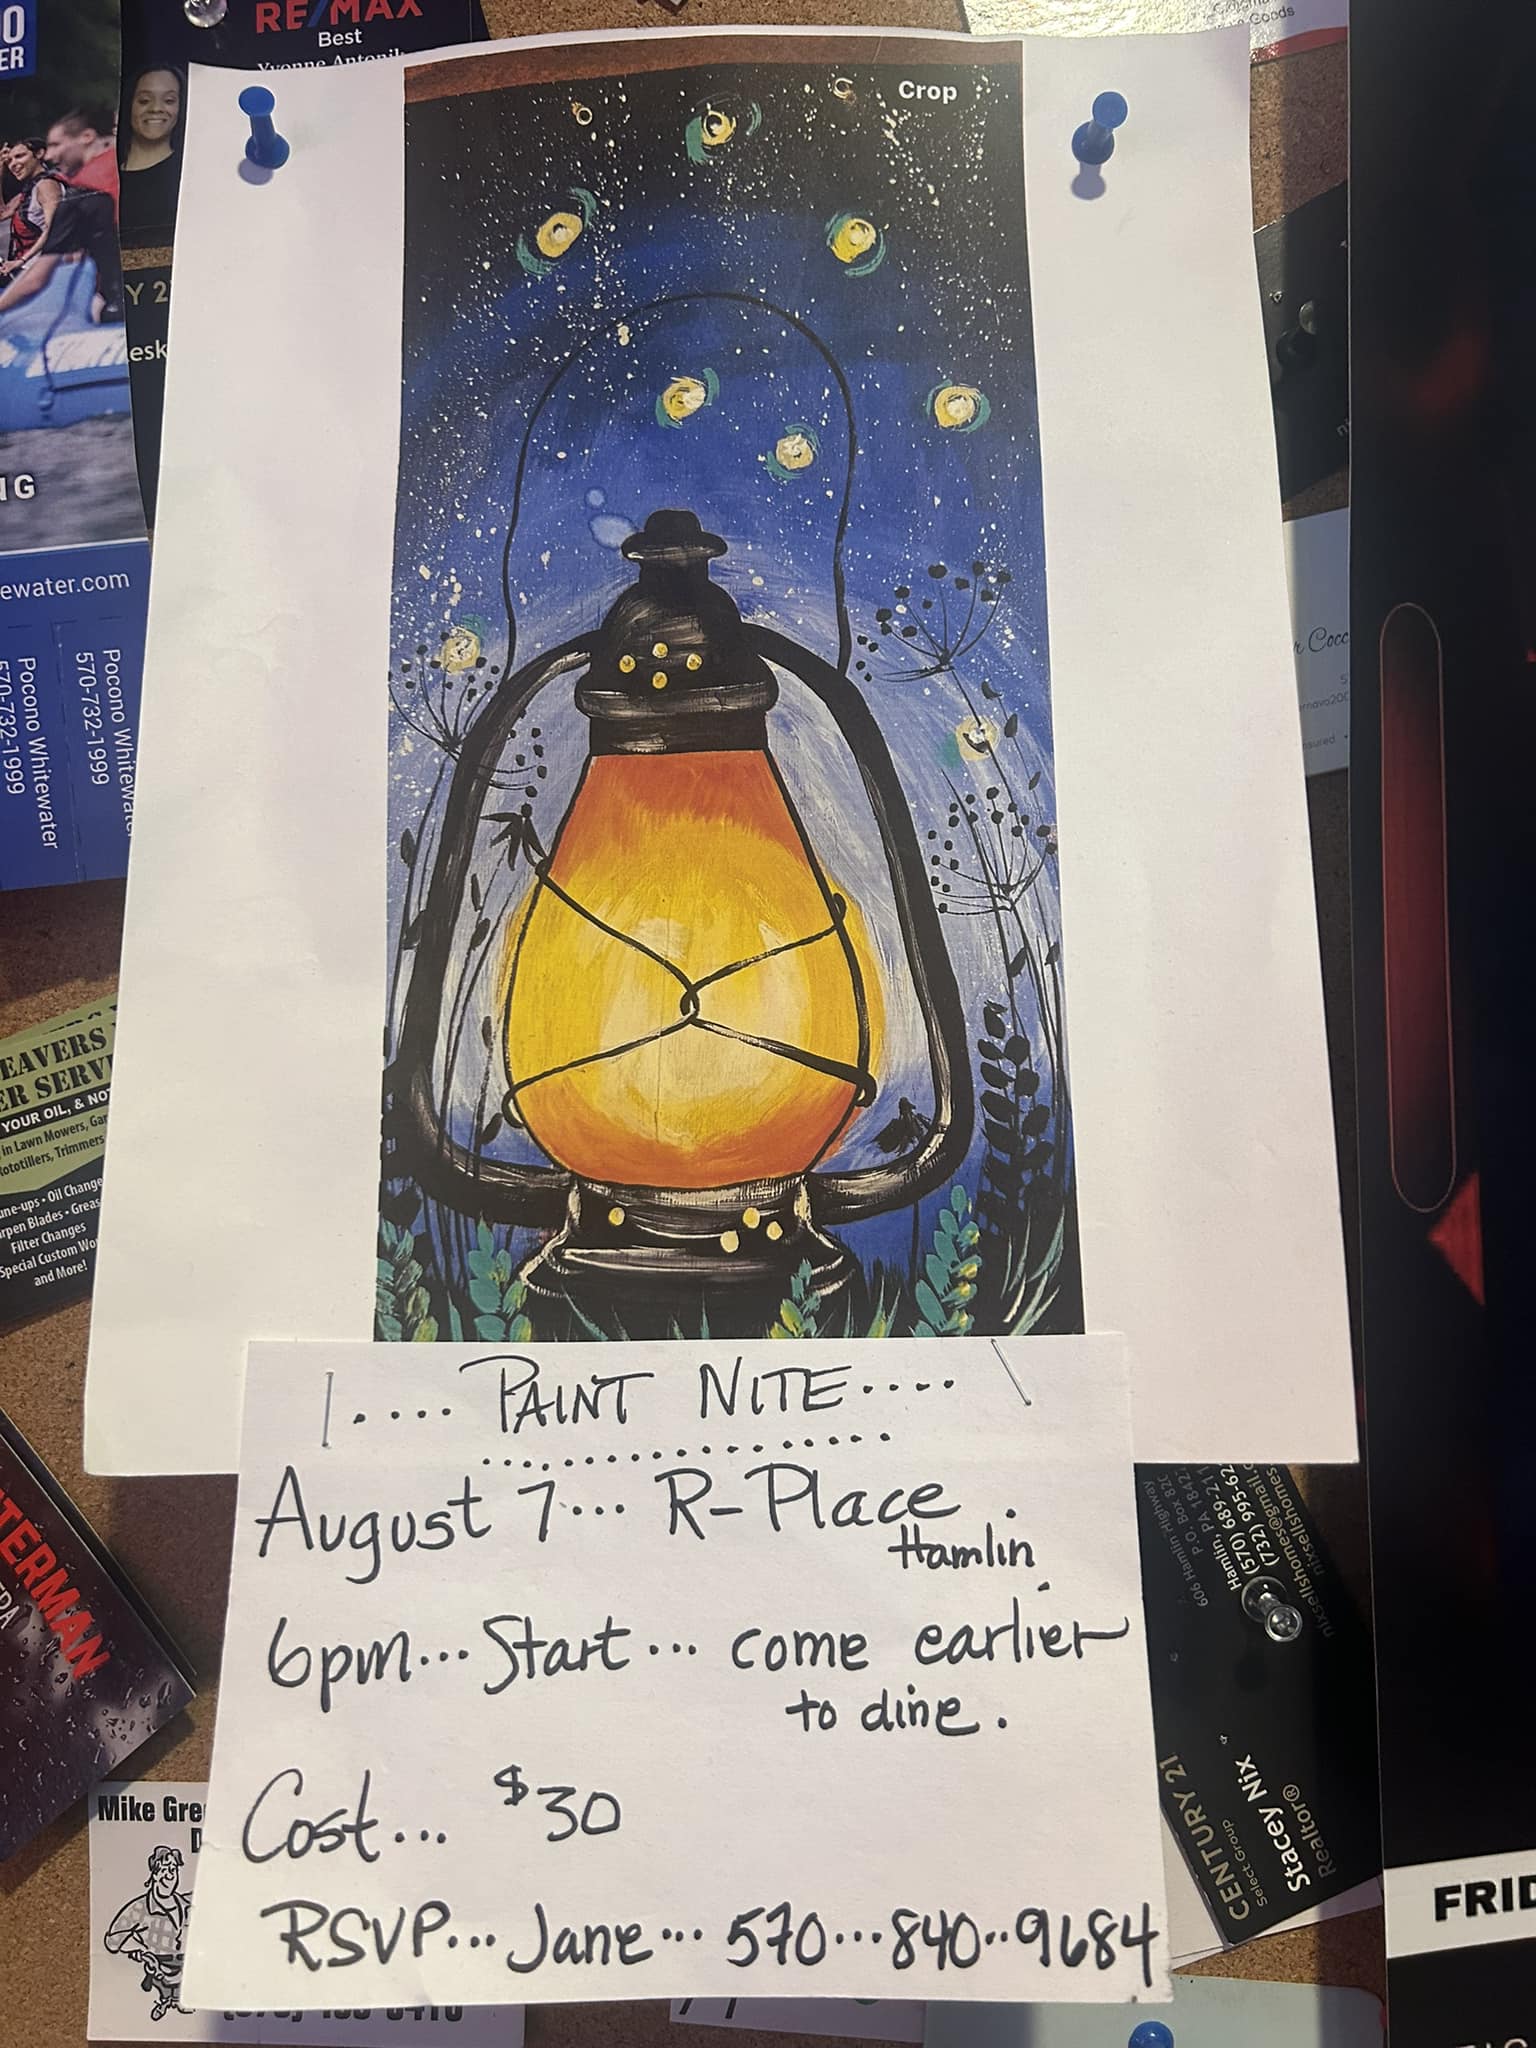 RE/MAX
Best
Crop
ewater.com
Pocono Whitewater
570-732-1999
Pocono Whitewater
570-732-1999
YOUR OIL, & NO
in Lawn Mowers, Gar
Trimmers
une-ups • Oil Change
rpen Blades • Greas
Filter Changes
Special Custom Wo
and More!
.... PAINT NITE ....
August 7... R-Place.
Hamlin.
6pm... Start... come earlier
to dine.
Cost... $30
RSVP... Jane... 570...840..9684
TERMAN
Mike Gre
606 Hamlin Highway
P.O. Box 82
Hamlin, PA 1842
(570) 689-211
(732) 995-62
nixsellshomes@gmail.c
nixsellshomes
CENTURY 21
Select Group
Stacey Nix
Realtor®
FRID